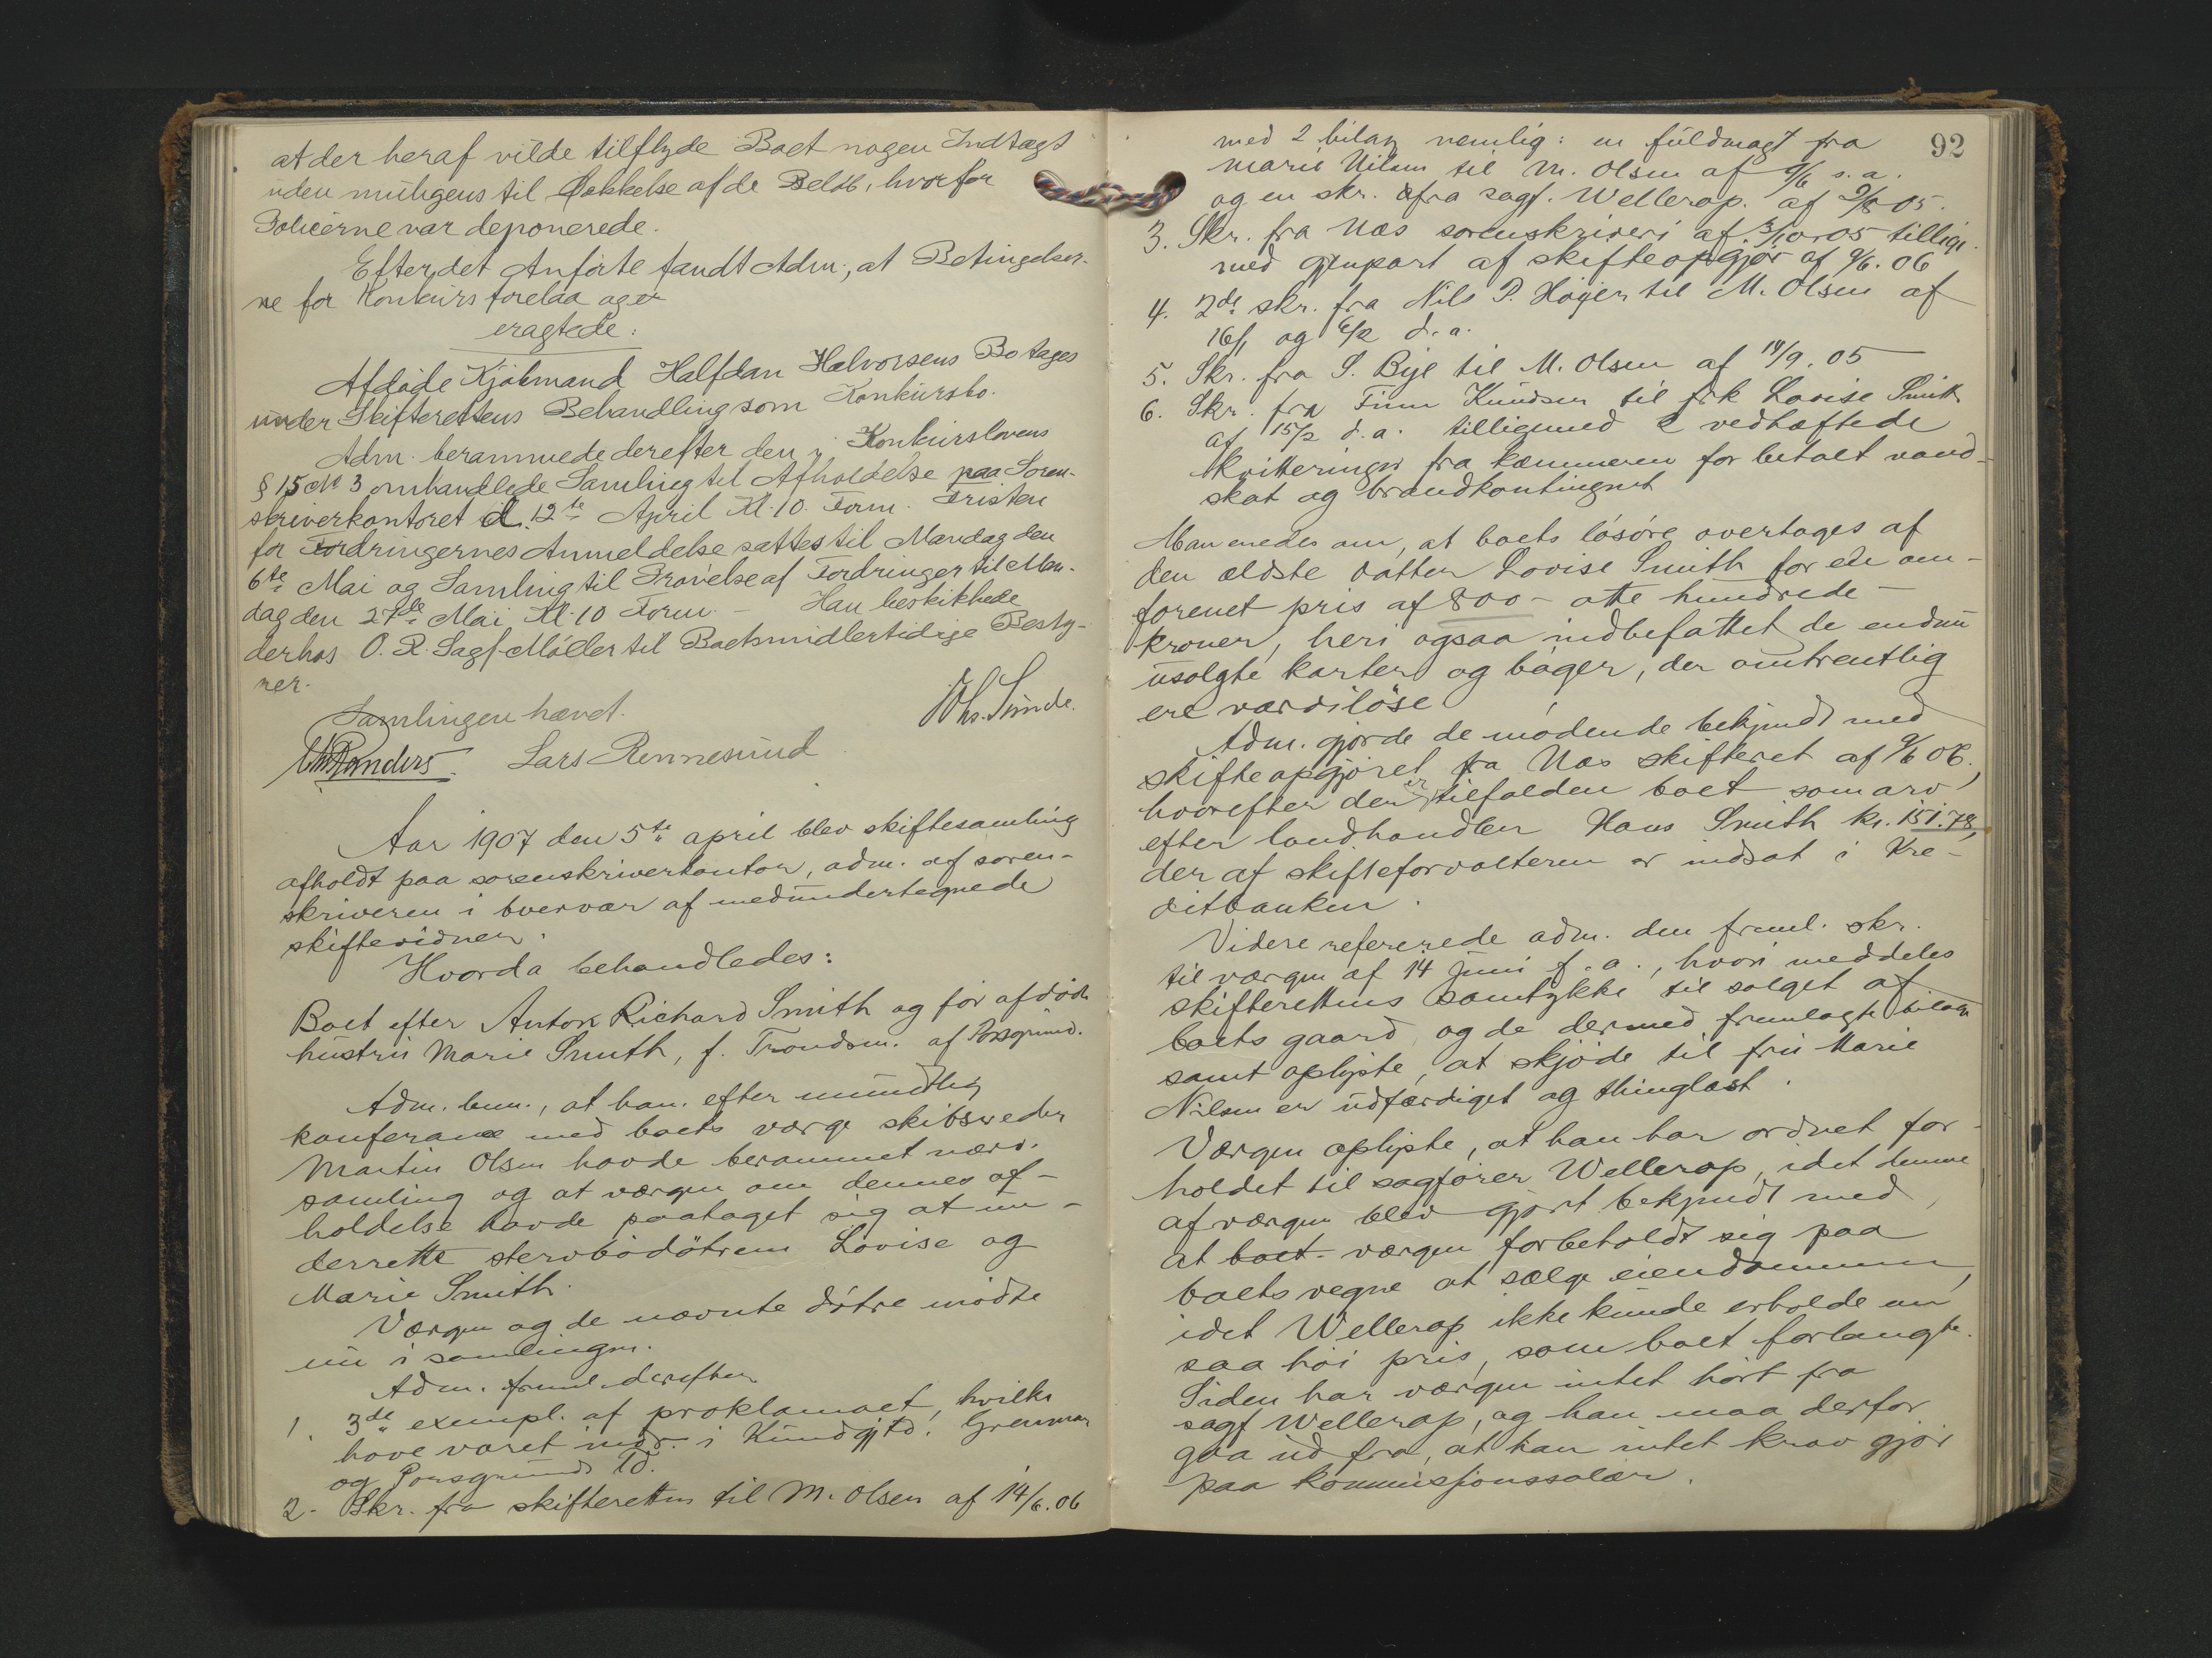 at der heraf vilde tilflyde Boet nogen Indtægt
uden muligens til Dækkelse af de Beløb, hvorfor
Policerne var deponerede.
Efter det Anførte fandt Adm., at Betingelser-
ne for Konkurs forelaa og er
eragtede:
Afdøde Kjøbmand Halfdan Halvorsens Bo tages
under Skifterettens Behandling som Konkursbo.
Adm. berammede derefter den i Konkurslovens
§ 15 No 3 omhandlede Samling til Afholdelse paa Soren-
skriverkontoret d. 12te April Kl. 10 Form. Fristen
for Fordringernes Anmeldelse sattes til Mandag den
6te Mai og Samling til Prøvelse af Fordringer til Man-
dag den 27de Mai Kl. 10 Form. - Han beskikkede
derhos O. R. Sagf. Møller til Boets midlertidige Besty-
rer.
Samlingen hævet.
Chs. Sunde.
Lars Rennesund
Aar 1907 den 5te april blev skiftesamling
afholdt paa sorenskriverkontor, adm. af soren-
skriveren i overvær af medundertegnede
skiftevidner.
Hvorda behandledes:
Boet efter Anton Richard Smith og før afdøde
hustru Marie Smith, f. Trondsen. af Porsgrund.
Adm. bem., at han efter mundtlig
konferance med boets værge skibsreder
Martin Olsen havde berammet nærv.
samling og at værgen om dennes af-
holdelse havde paataget sig at un-
derrette stervbødøtrene Lovise og
Marie Smith.
Værgen og de nævnte døtre mødte
nu i samlingen.
Adm. freml. derefter
1. 3de exempl. af proklamaet, hvilke
have været indr. i Kundgjtd. Grenmar
og Porsgrunds Td.
2. Skr. fra skifteretten til M. Olsen af 14/6.06
92
med 2 bilag nemlig: en fuldmagt fra
Marie Nilsen til M. Olsen af 9/6 s. a.
og en skr. fra sagf. Wellerop. af 2/8 05.
3. Skr. fra Næs sorenskriveri af 3/10.05 tillige
med gjenpart af skifteopgjør af 9/6.06
4. 2de skr. fra Nils P. Høyer til M. Olsen af
16/1 og 6/2 d. a.
5. Skr. fra S. Bye til M. Olsen af 14/9.05
6. Skr. fra Finn Knudsen til frk Lovise Smith
af 15/2 d. a. tilligemed 2 vedhæftede
kvitteringer fra kæmneren for betalt vand-
skat og brandkontingent
Man enedes om, at boets løsøre overtages af
den ældste datter Lovise Smith for en om-
forenet pris af 800 - otte hundrede -
kroner, heri ogsaa indbefattet de endnu
usolgte karter og bøger, der omtrentlig
ere værdiløse
Adm. gjorde de mødende bekjendt med
skifteopgjøret fra Næs skifteret af 9/6 06.,
hvorefter der er tilfalden boet som arv
efter landhandler Hans Smith kr. 151.78,
der af skifteforvalteren er indsat i Kre-
ditbanken.
Videre refererede adm. den freml. skr.
til værgen af 14 juni f. a., hvori meddeles
skifterettens samtykke til salget af
boets gaard, og de dermed fremlagte bilag
samt oplyste, at skjøde til fru Marie
Nilsen er udfærdiget og thinglæst.
Værgen oplyste, at han har ordnet for-
holdet til sagfører Wellerop, idet denne
af værgen blev gjort bekjendt med,
at boet- værgen forbeholdt sig paa
boets vegne at sælge eiendommen,
idet Wellerop ikke kunde erholde en
saa høi pris, som boet forlangte.
Siden har værgen intet hørt fra
sagf Wellerop, og han maa derfor
gaa ud fra, at han intet krav gjør
paa kommissjonssalær.